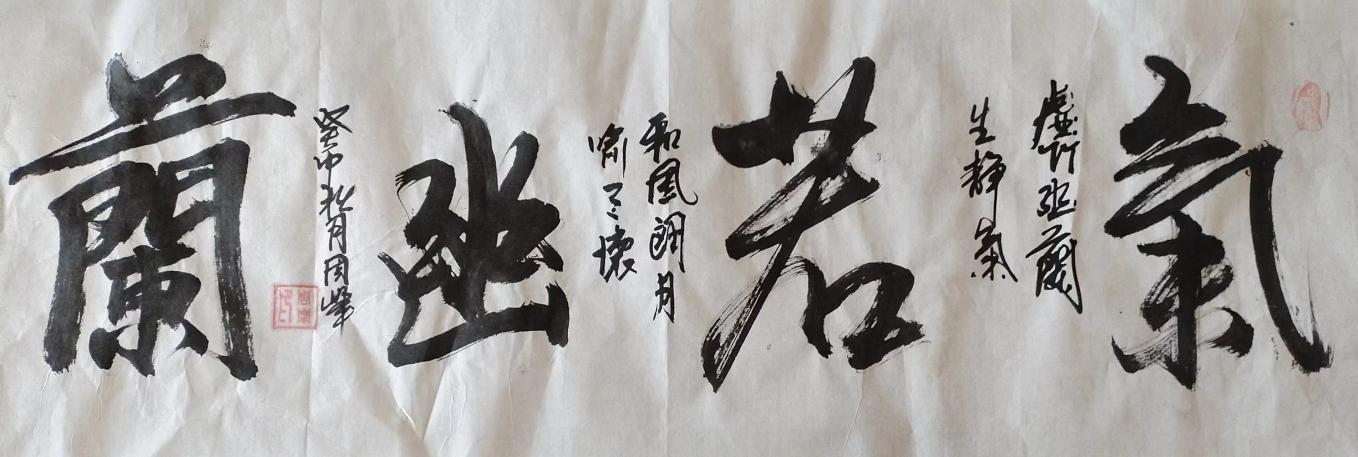 氣
虛竹幽蘭
生靜氣
若
和風朗月
喻天懷
幽
癸卯秋月周峰
蘭